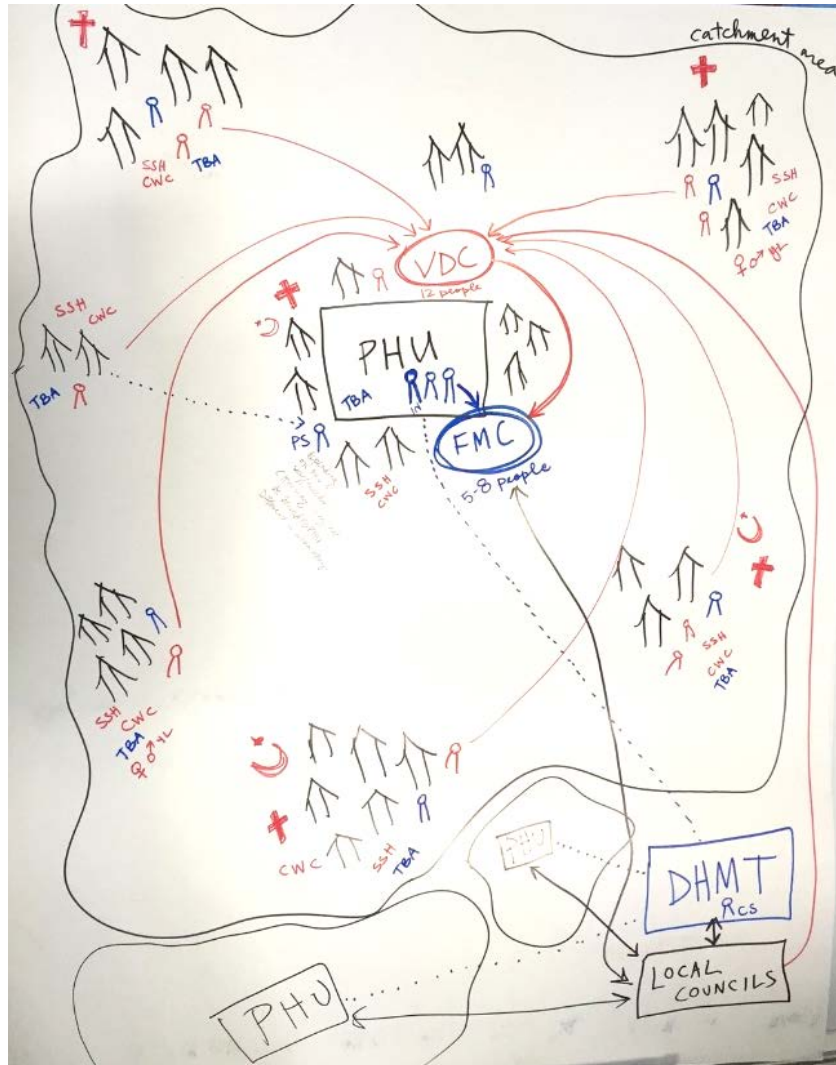 catchment area
SSH
CWC
TBA
SSH
CWC
TBA
YL
VDC
12 people
SSH
CWC
TBA
PHU
TBA
PS
FMC
5-8 people
SSH
CWC
SSH
CWC
TBA
SSH
CWC
TBA
YL
CWC
SSH
TBA
PHU
DHMT
CS
LOCAL
COUNCILS
PHU